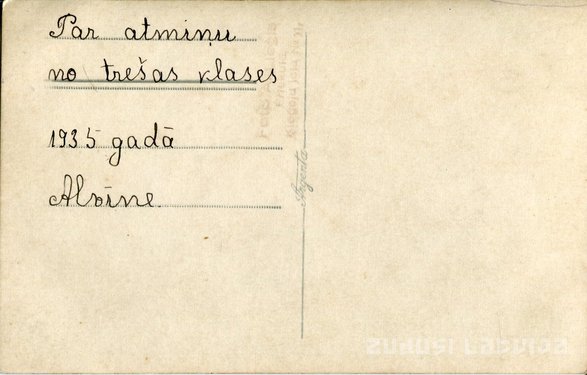 Par atmiņu
no trešas klases
1935 gadā
Alvīne
Argenta
zudusi Latvija